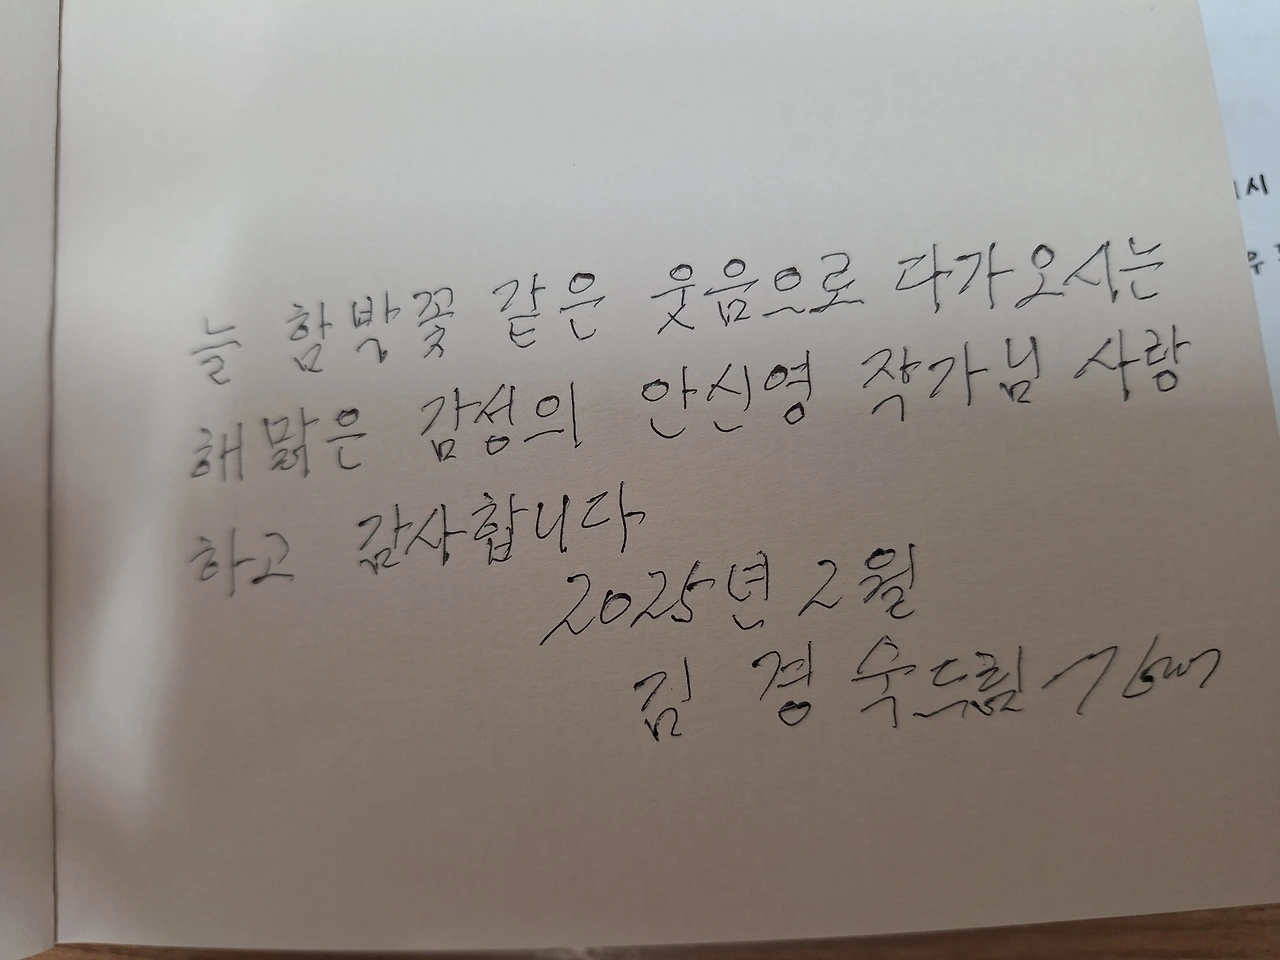 늘 함박꽃 같은 웃음으로 다가오시는
해맑은 감성의 안신영 작가님 사랑
하고 감사합니다
2025년 2월
김 경 숙드림
시
우